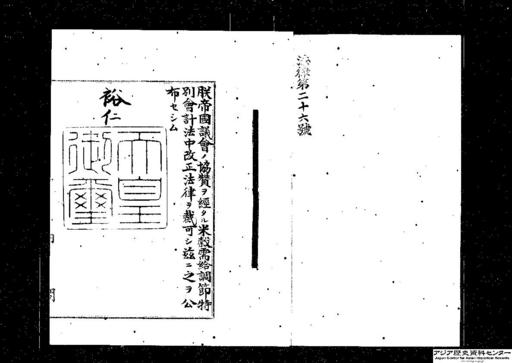 法律第二十六號
朕帝國議會ノ協賛ヲ經タル米穀需給調節特
別會計法中改正法律ヲ裁可シ茲ニ之ヲ公
布セシム
裕仁
天皇
御璽
アジア歴史資料センター
Japan Center for Asian Historical Records